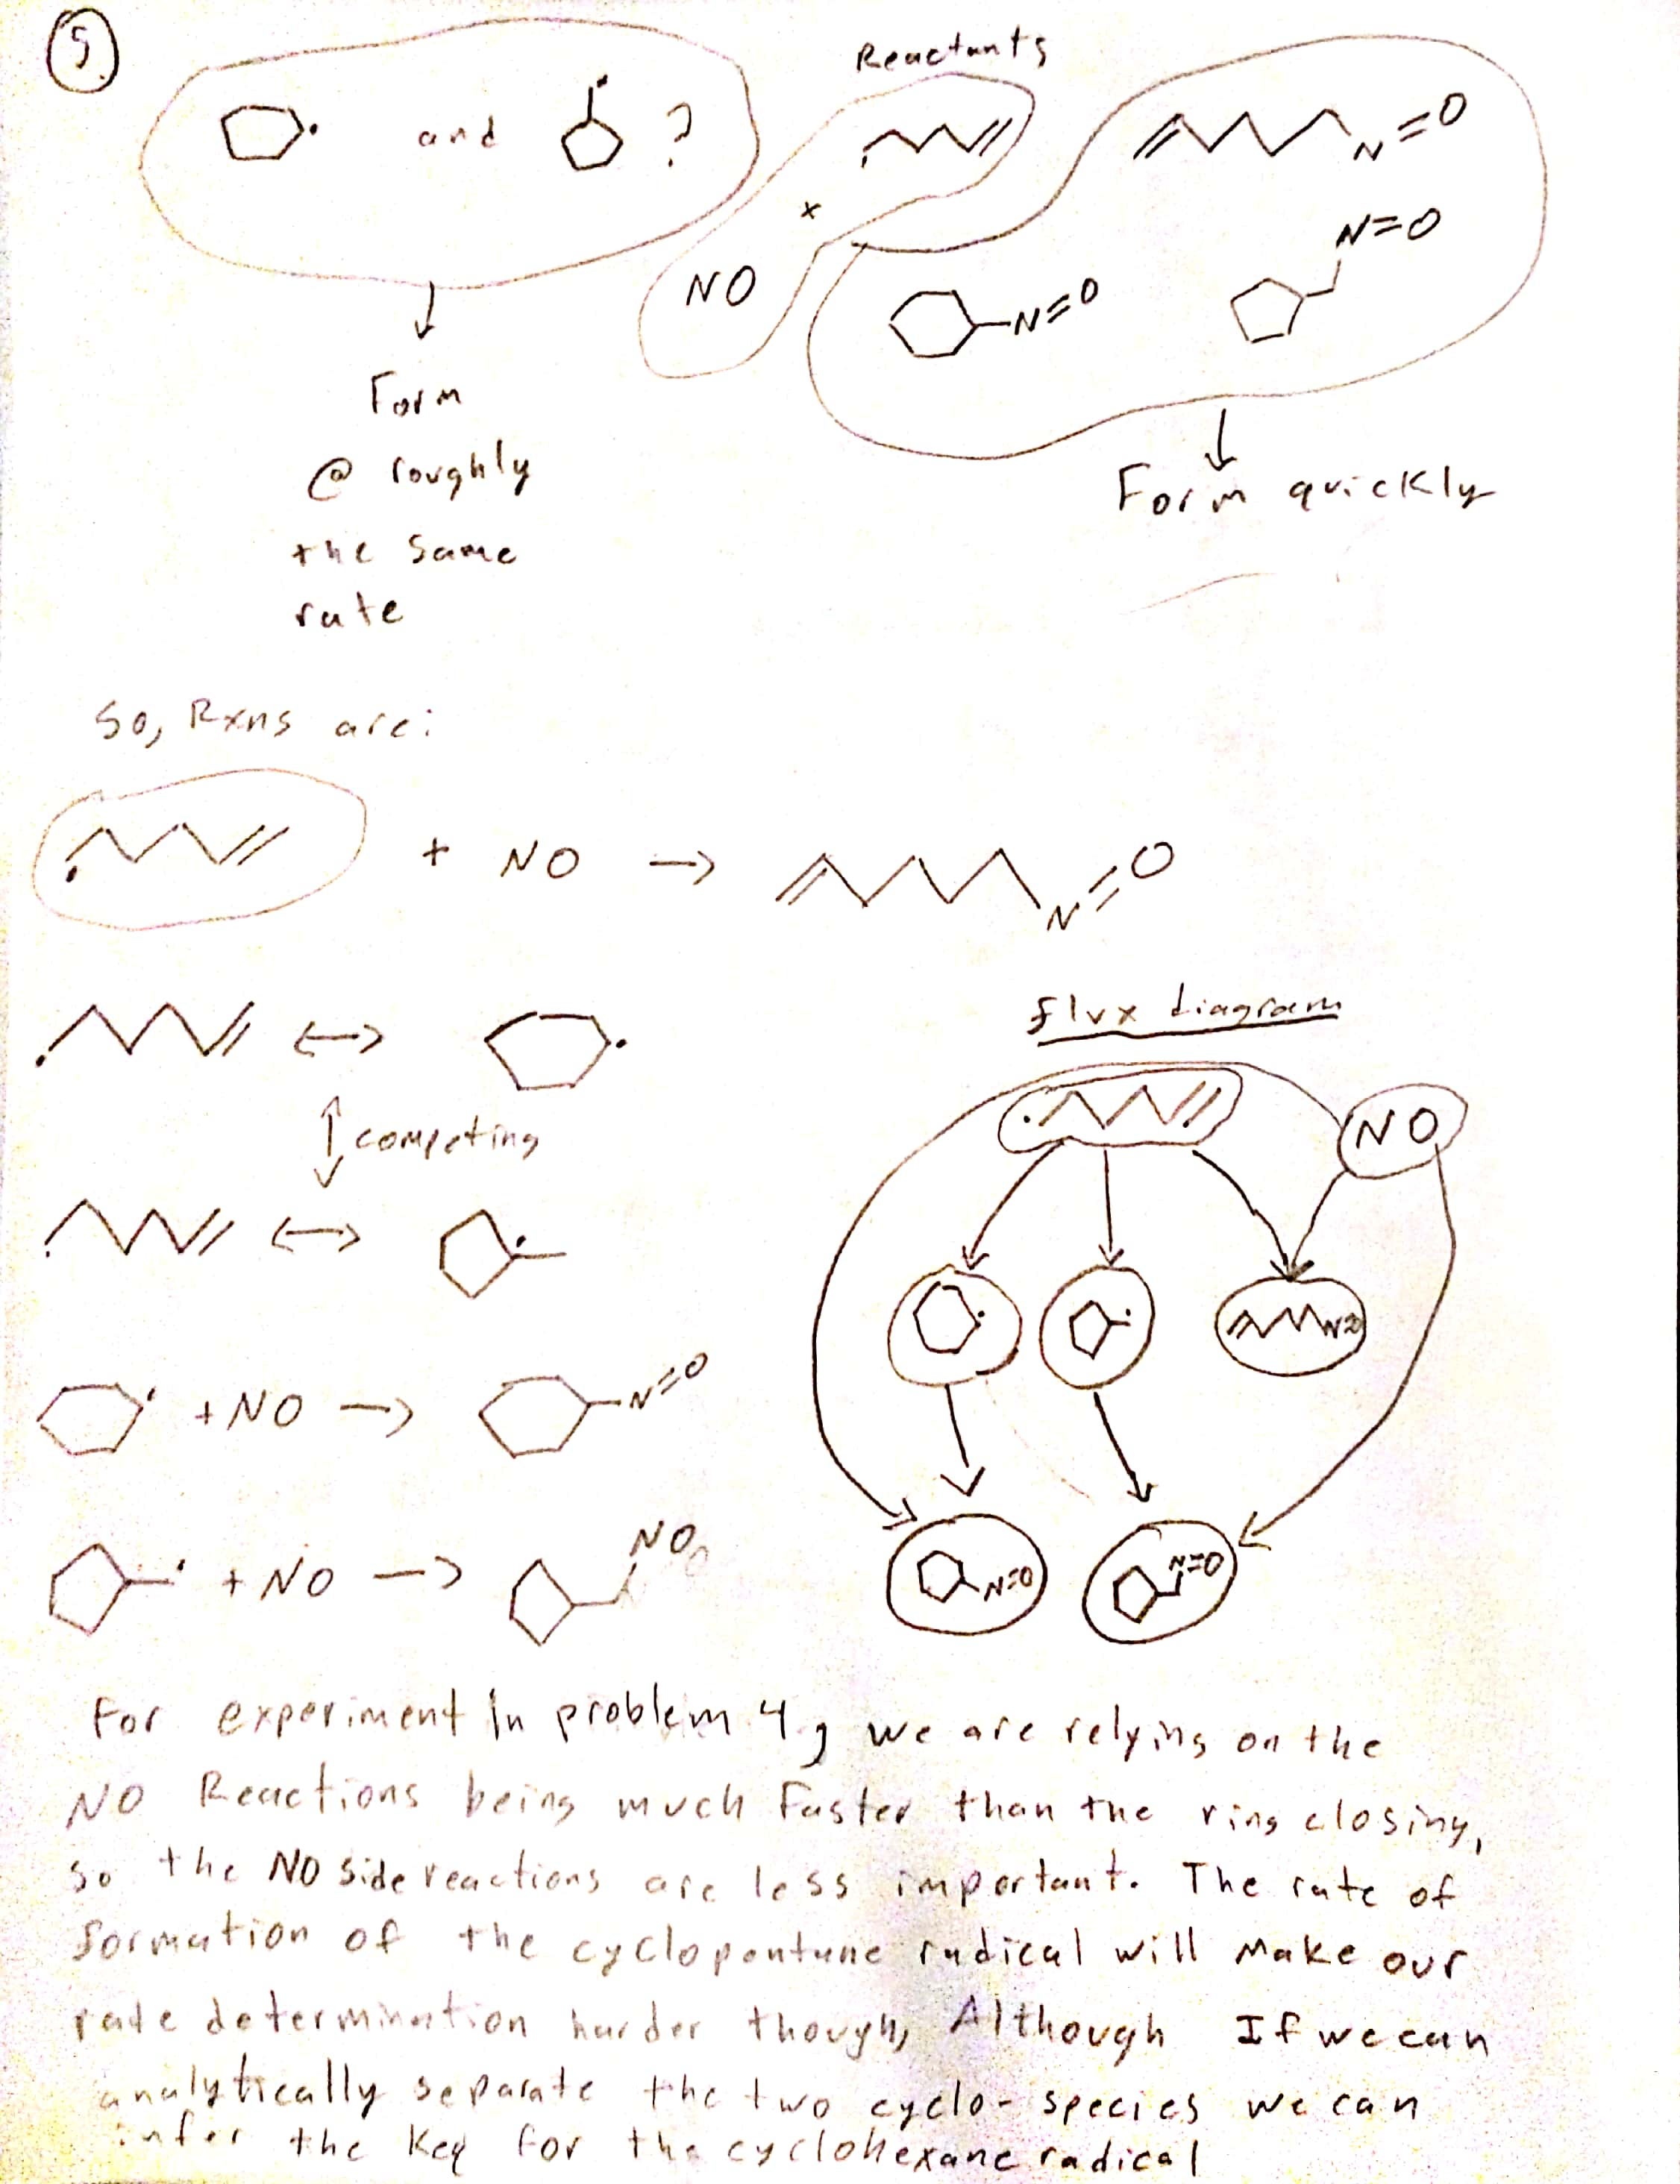 5
Reactants
and ?
N=O
+
N=O
NO
N=O
Form
@ roughly
the same
rate
Form quickly
So, Rxns are:
+ NO → N=O
↔
flux diagram
↕ competing
NO
↔
N=O
+NO → N=O
+NO → NO
N=O
N=O
For experiment In problem 4, we are relying on the
NO Reactions being much faster than the ring closing,
so the NO side reactions are less important. The rate of
formation of the cyclopentane radical will make our
rate determination harder though, Although If we can
analytically separate the two cyclo-species we can
infer the Keq for the cyclohexane radical